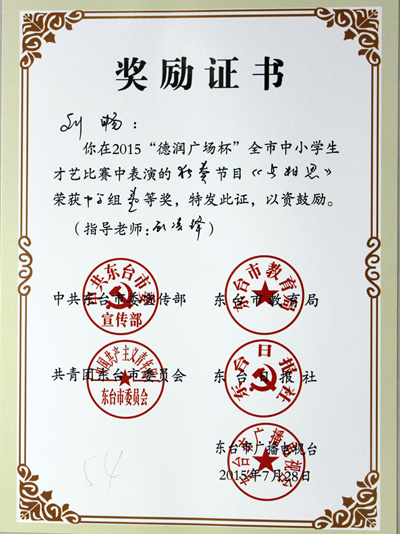 奖励证书
刘 畅：
你在2015“德润广场杯”全市中小学生
才艺比赛中表演的独奏节目《点相思》
荣获中学组壹等奖，特发此证，以资鼓励。
（指导老师： ）
中共东台市委宣传部 东台市教育局
中共东台市委 宣传部
东台市教育局
共青团东台市委员会 东台日报社
东台市委员会
东台日报社
东台市广播电视台
2015年7月28日
54